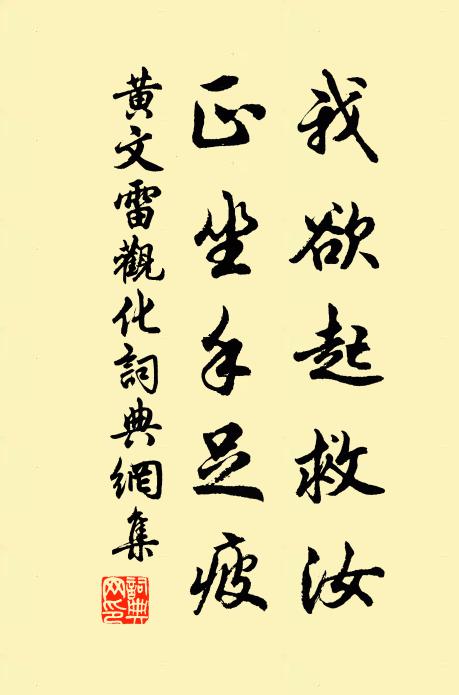 我欲起救汝
正坐手足疲
黄文雷觀化詞典網集
詞典網印